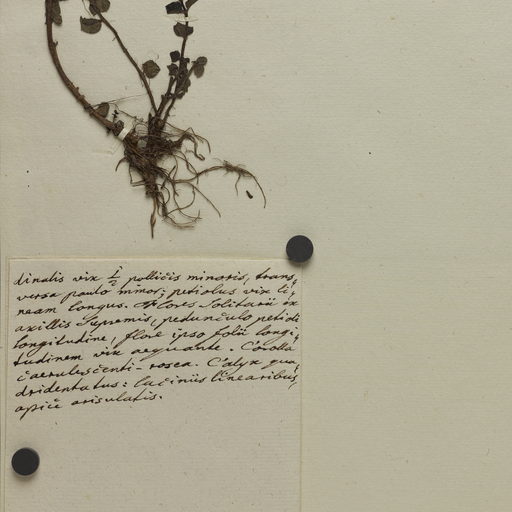 dinalis vix ½ pollicis minoris, trans,
versa paulo minor; petiolus vix li,
neam longus. Flores Solitarii ex
axillis Supremis, pedunculo petioli
longitudine, flore ipso folii longi,
tudinem vix aequante. Corolla
caerulescenti-rosea. Calyx qua,
dridentatus: laciniis linearibus,
apice arisulatis.